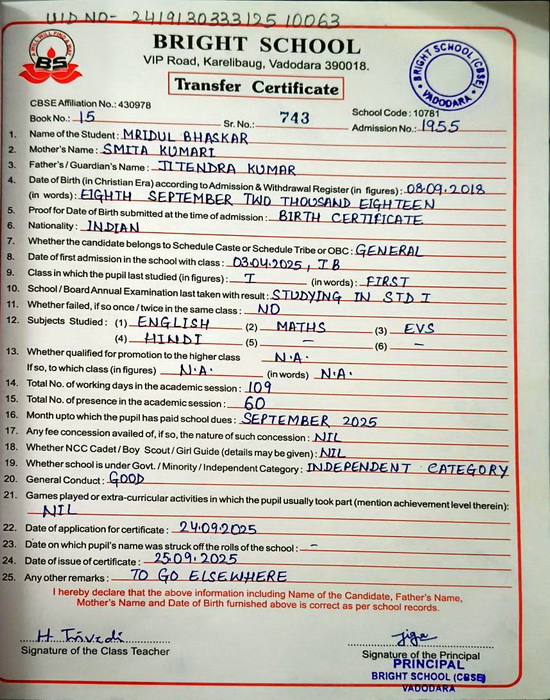 UID NO- 2419130333125 10063
BRIGHT SCHOOL
VIP Road, Karelibaug, Vadodara 390018.
Transfer Certificate
A WILL WILL FIND A WAY
BS
BRIGHT SCHOOL (CBSE)
VADODARA
CBSE Affiliation No.: 430978
School Code : 10781
Book No.: 15 Sr. No.: 743 Admission No.: 1955
1. Name of the Student : MRIDUL BHASKAR
2. Mother's Name : SMITA KUMARI
3. Father's / Guardian's Name : JITENDRA KUMAR
4. Date of Birth (in Christian Era) according to Admission & Withdrawal Register (in figures) : 08.09.2018
(in words) : EIGHTH SEPTEMBER TWO THOUSAND EIGHTEEN
5. Proof for Date of Birth submitted at the time of admission : BIRTH CERTIFICATE
6. Nationality : INDIAN
7. Whether the candidate belongs to Schedule Caste or Schedule Tribe or OBC : GENERAL
8. Date of first admission in the school with class : 03.04.2025, I B
9. Class in which the pupil last studied (in figures) : I (in words) : FIRST
10. School / Board Annual Examination last taken with result : STUDYING IN STD I
11. Whether failed, if so once / twice in the same class : NO
12. Subjects Studied : (1) ENGLISH (2) MATHS (3) EVS
(4) HINDI (5) – (6) –
13. Whether qualified for promotion to the higher class N.A.
If so, to which class (in figures) N.A. (in words) N.A.
14. Total No. of working days in the academic session : 109
15. Total No. of presence in the academic session : 60
16. Month upto which the pupil has paid school dues : SEPTEMBER 2025
17. Any fee concession availed of, if so, the nature of such concession : NIL
18. Whether NCC Cadet / Boy Scout / Girl Guide (details may be given) : NIL
19. Whether school is under Govt. / Minority / Independent Category : INDEPENDENT CATEGORY
20. General Conduct : GOOD
21. Games played or extra-curricular activities in which the pupil usually took part (mention achievement level therein):
NIL
22. Date of application for certificate : 24.09.2025
23. Date on which pupil's name was struck off the rolls of the school : –
24. Date of issue of certificate : 25.09.2025
25. Any other remarks : TO GO ELSEWHERE
I hereby declare that the above information including Name of the Candidate, Father's Name,
Mother's Name and Date of Birth furnished above is correct as per school records.
H Trivedi
Signature of the Class Teacher
Signature of the Principal
PRINCIPAL
BRIGHT SCHOOL (CBSE)
VADODARA